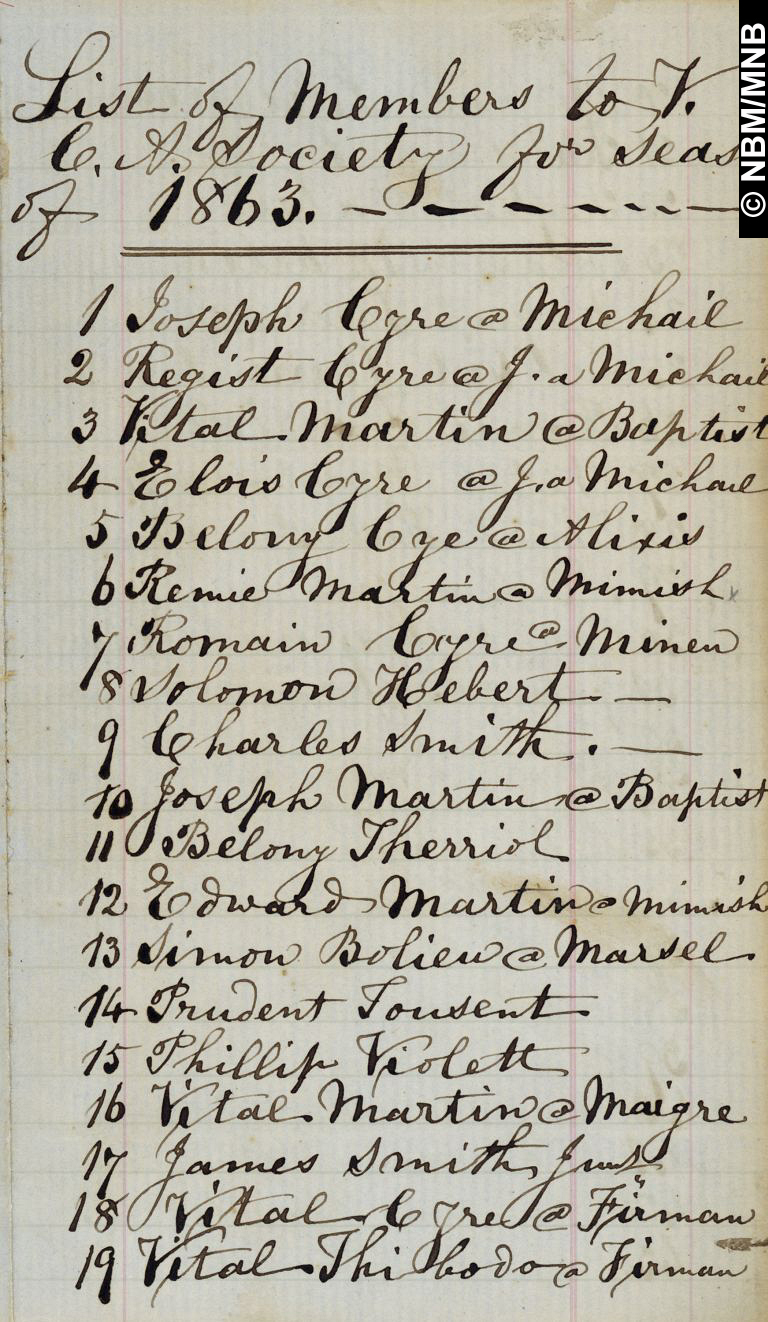 List of Members to V.
C. A. Society for Seas
of 1863. — — — — — — —
1 Joseph Cyre @ Michail
2 Regist Cyre @ J. a Michail
3 Vital Martin @ Baptist
4 Elois Cyre @ J. a Michael
5 Belony Cye @ Alixis
6 Remie Martin @ Mimish
7 Romain Cyre @ Minen
8 Solomon Hebert —
9 Charles Smith. —
10 Joseph Martin @ Baptist
11 Belony Therriol
12 Edward Martin @ Mimish
13 Simon Bolieu @ Marsel.
14 Prudent Tousent
15 Phillip Violett
16 Vital Martin @ Maigre
17 James Smith, Junr
18 Vital Cyre @ Firman
19 Vital Thibodo @ Firman
© NBM/MNB